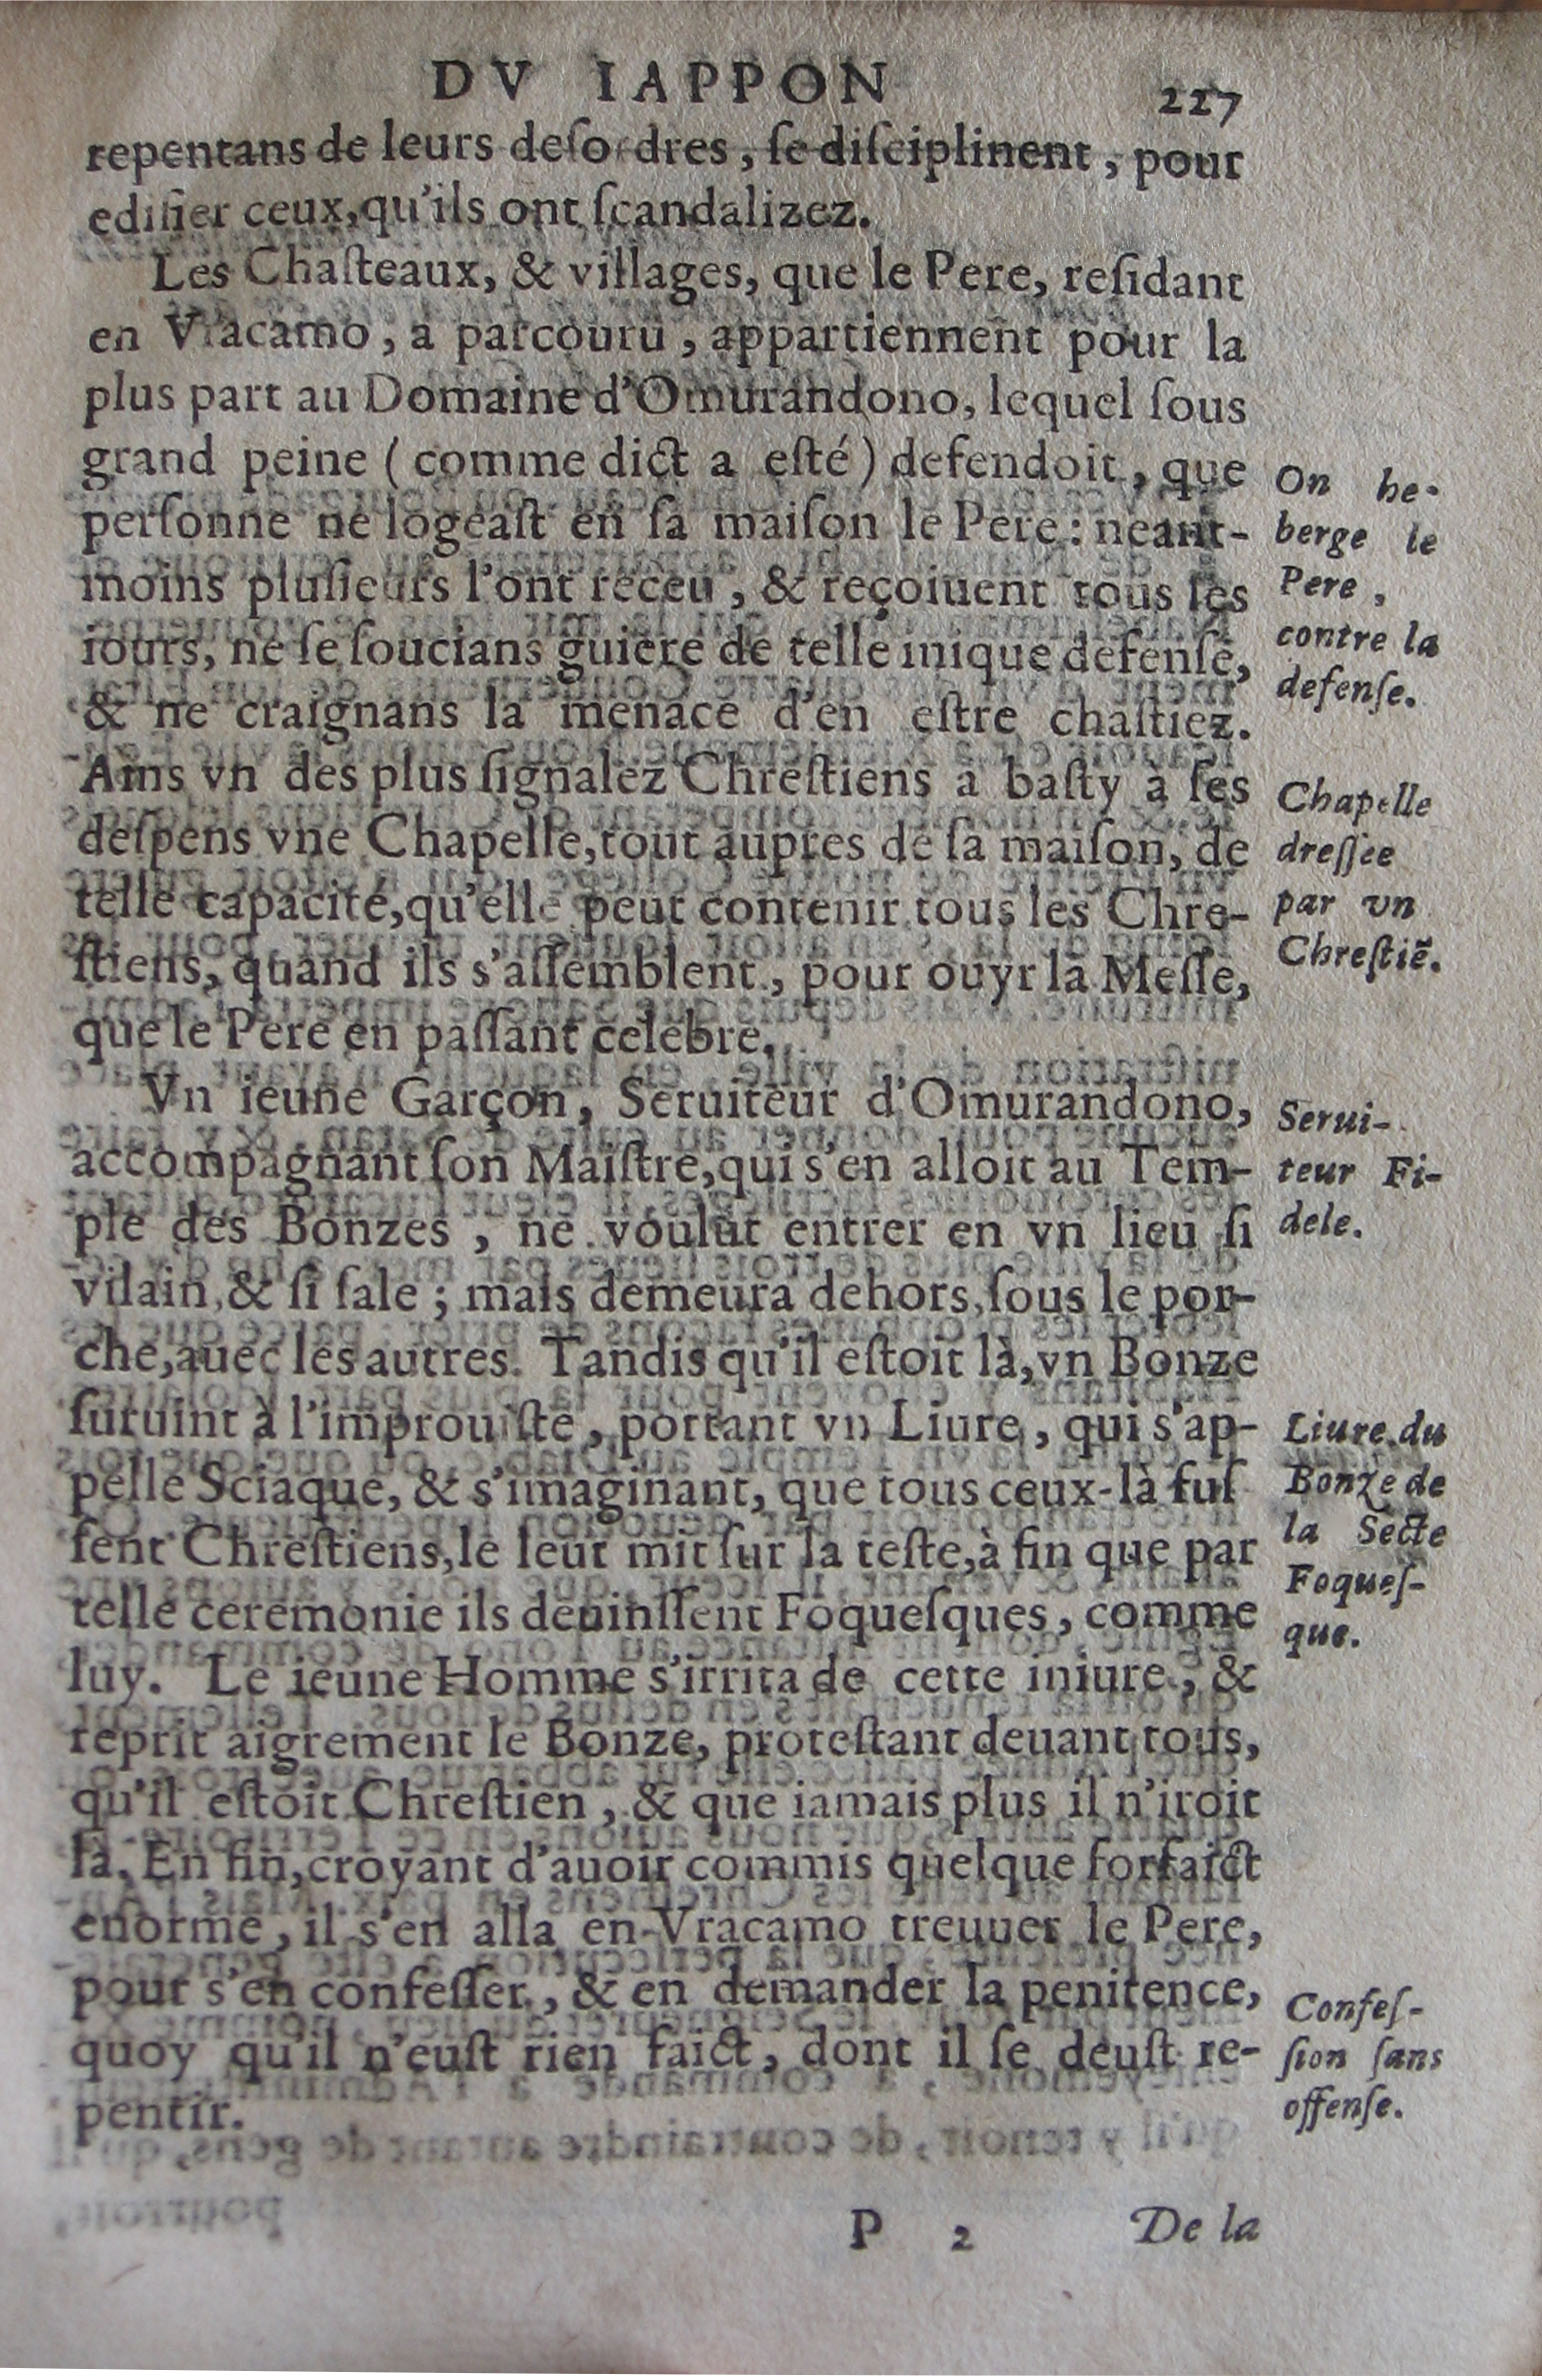 DV IAPPON
227
repentans de leurs desordres, ſe diſciplinent, pour
edifier ceux, qu'ils ont ſcandalizez.
Les Chaſteaux, & villages, que le Pere, reſidant
en Vracamo, a parcouru, appartiennent pour la
plus part au Domaine d'Omurandono, lequel ſous
grand peine (comme dict a eſté) defendoit, que
perſonne ne logeaſt en ſa maiſon le Pere: neant-
moins pluſieurs l'ont receu, & reçoiuent tous les
iours, ne ſe ſoucians guiere de telle inique defenſe,
& ne craignans la menace d'en eſtre chaſtiez.
Ains vn des plus ſignalez Chreſtiens a baſty à ſes
deſpens vne Chapelle, tout aupres de ſa maiſon, de
telle capacité, qu'elle peut contenir tous les Chre-
ſtiens, quand ils s'aſſemblent, pour ouyr la Meſſe,
que le Pere en paſſant celebre.
Vn ieune Garçon, Seruiteur d'Omurandono,
accompagnant ſon Maiſtre, qui s'en alloit au Tem-
ple des Bonzes, ne voulut entrer en vn lieu ſi
vilain, & ſi ſale; mais demeura dehors, ſous le por-
che, auec les autres. Tandis qu'il eſtoit là, vn Bonze
ſuruint à l'improuiſte, portant vn Liure, qui s'ap-
pelle Sciaque, & s'imaginant, que tous ceux-là fuſ
ſent Chreſtiens, le leur mit ſur la teſte, à fin que par
telle ceremonie ils deuinſſent Foqueſques, comme
luy. Le ieune Homme s'irrita de cette iniure, &
reprit aigrement le Bonze, proteſtant deuant tous,
qu'il eſtoit Chreſtien, & que iamais plus il n'iroit
là. En fin, croyant d'auoir commis quelque forfaict
enorme, il s'en alla en Vracamo treuuer le Pere,
pour s'en confeſſer, & en demander la penitence,
quoy qu'il n'euſt rien faict, dont il ſe deuſt re-
pentir.
On he-
berge le
Pere,
contre la
defenſe.
Chapelle
dreſſee
par vn
Chreſtiē.
Serui-
teur Fi-
dele.
Liure du
Bonze de
la Secte
Foqueſ-
que.
Confeſ-
ſion ſans
offenſe.
P 2
De la